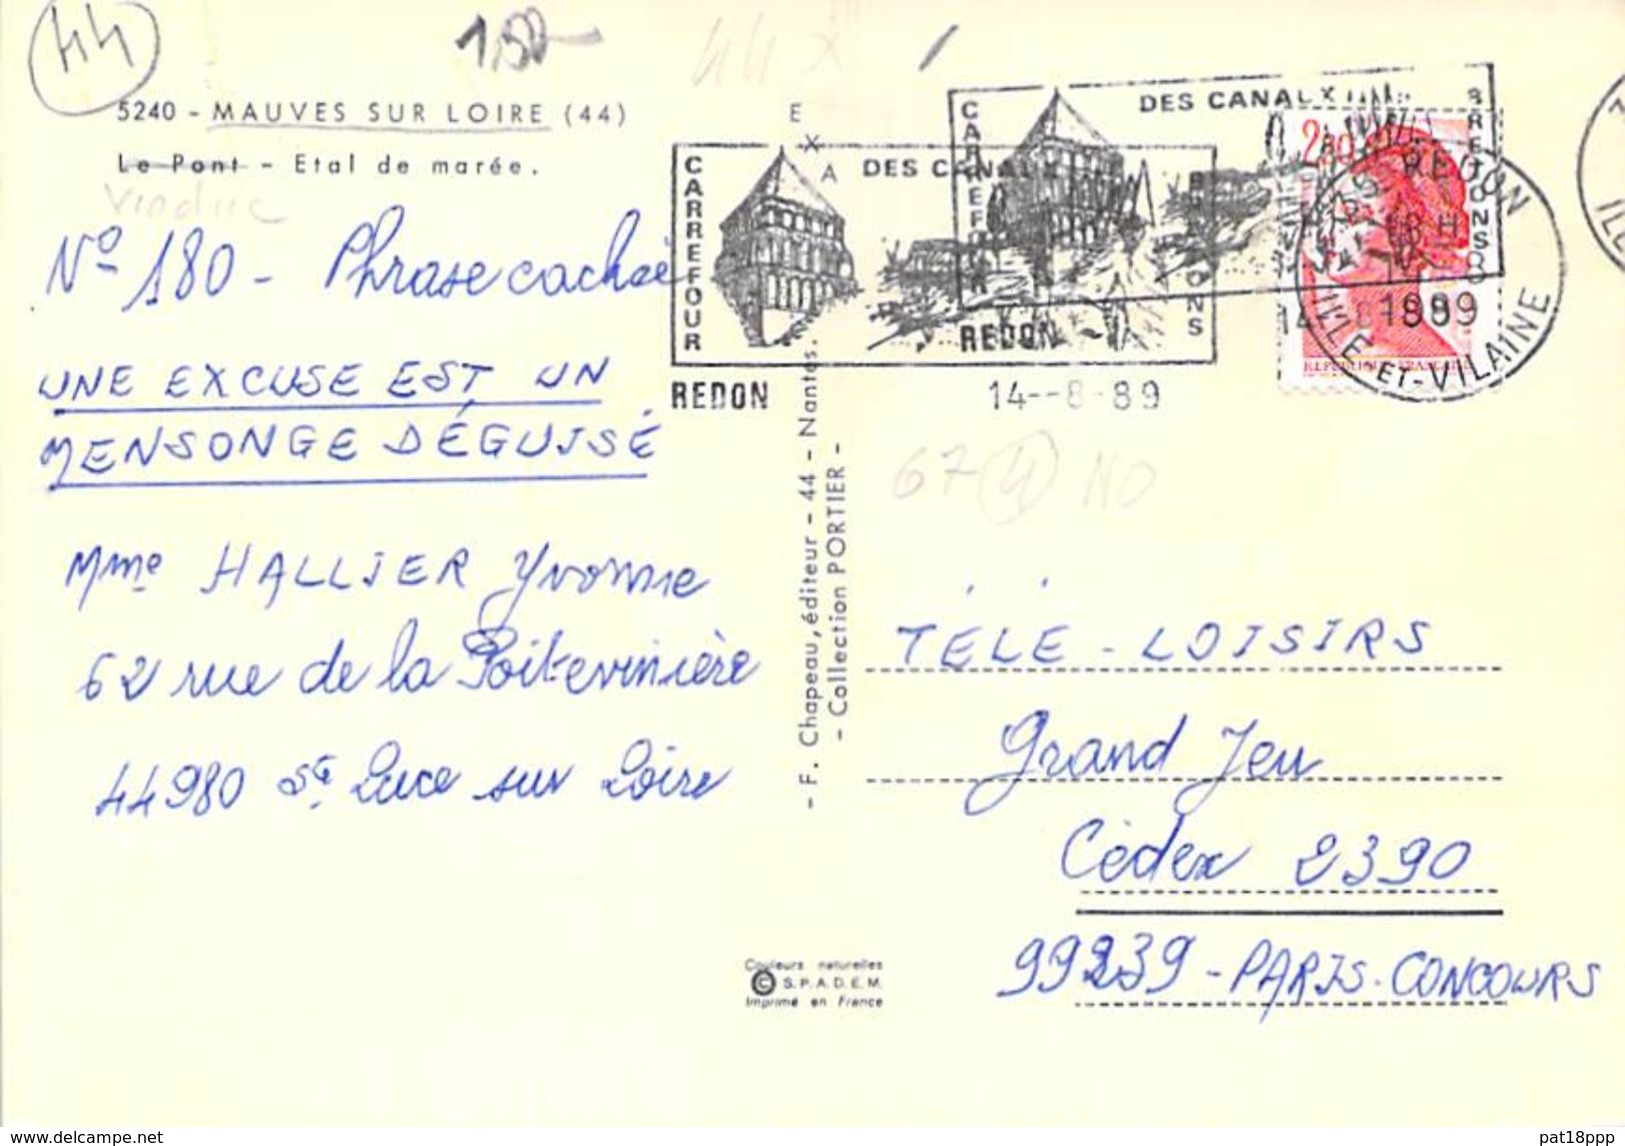 44
1,50
44 X
5240 - MAUVES SUR LOIRE (44)
Le Pont - Etal de marée.
Viaduc
E
X
A
N° 180 - Phrase cachée
UNE EXCUSE EST UN
MENSONGE DÉGUISÉ
Mme HALLIER Yvonne
62 rue de la Poitevinière
44980 Ste Luce sur Loire
CARREFOUR
DES CANAUX
BRETONS
REDON
14--8-89
CARREFOUR
DES CANAUX
BRETONS
REDON
2,20
REPUBLIQUE FRANÇAISE
35 REDON
18 H
14
1989
ILLE-ET-VILAINE
67 4 NO
- F. Chapeau, éditeur - 44 - Nantes.
- Collection PORTIER -
TÉLÉ - LOISIRS
Grand Jeu
Cédex 2390
99239 - PARIS - CONCOURS
Couleurs naturelles
© S.P.A.D.E.M.
Imprimé en France
www.delcampe.net
pat18ppp